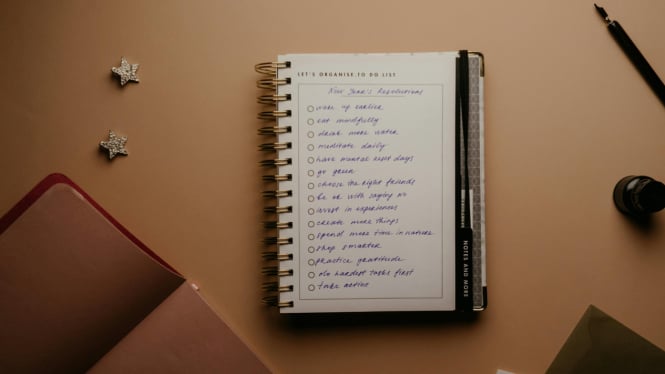 LET'S ORGANISE.TO DO LIST
New Year's Resolutions
wake up earlier
eat mindfully
drink more water
meditate daily
have mental rest days
go green
choose the right friends
be ok with saying no
invest in experiences
create more things
spend more time in nature
shop smarter
practice gratitude
do hardest tasks first
take action
NOTES AND MORE